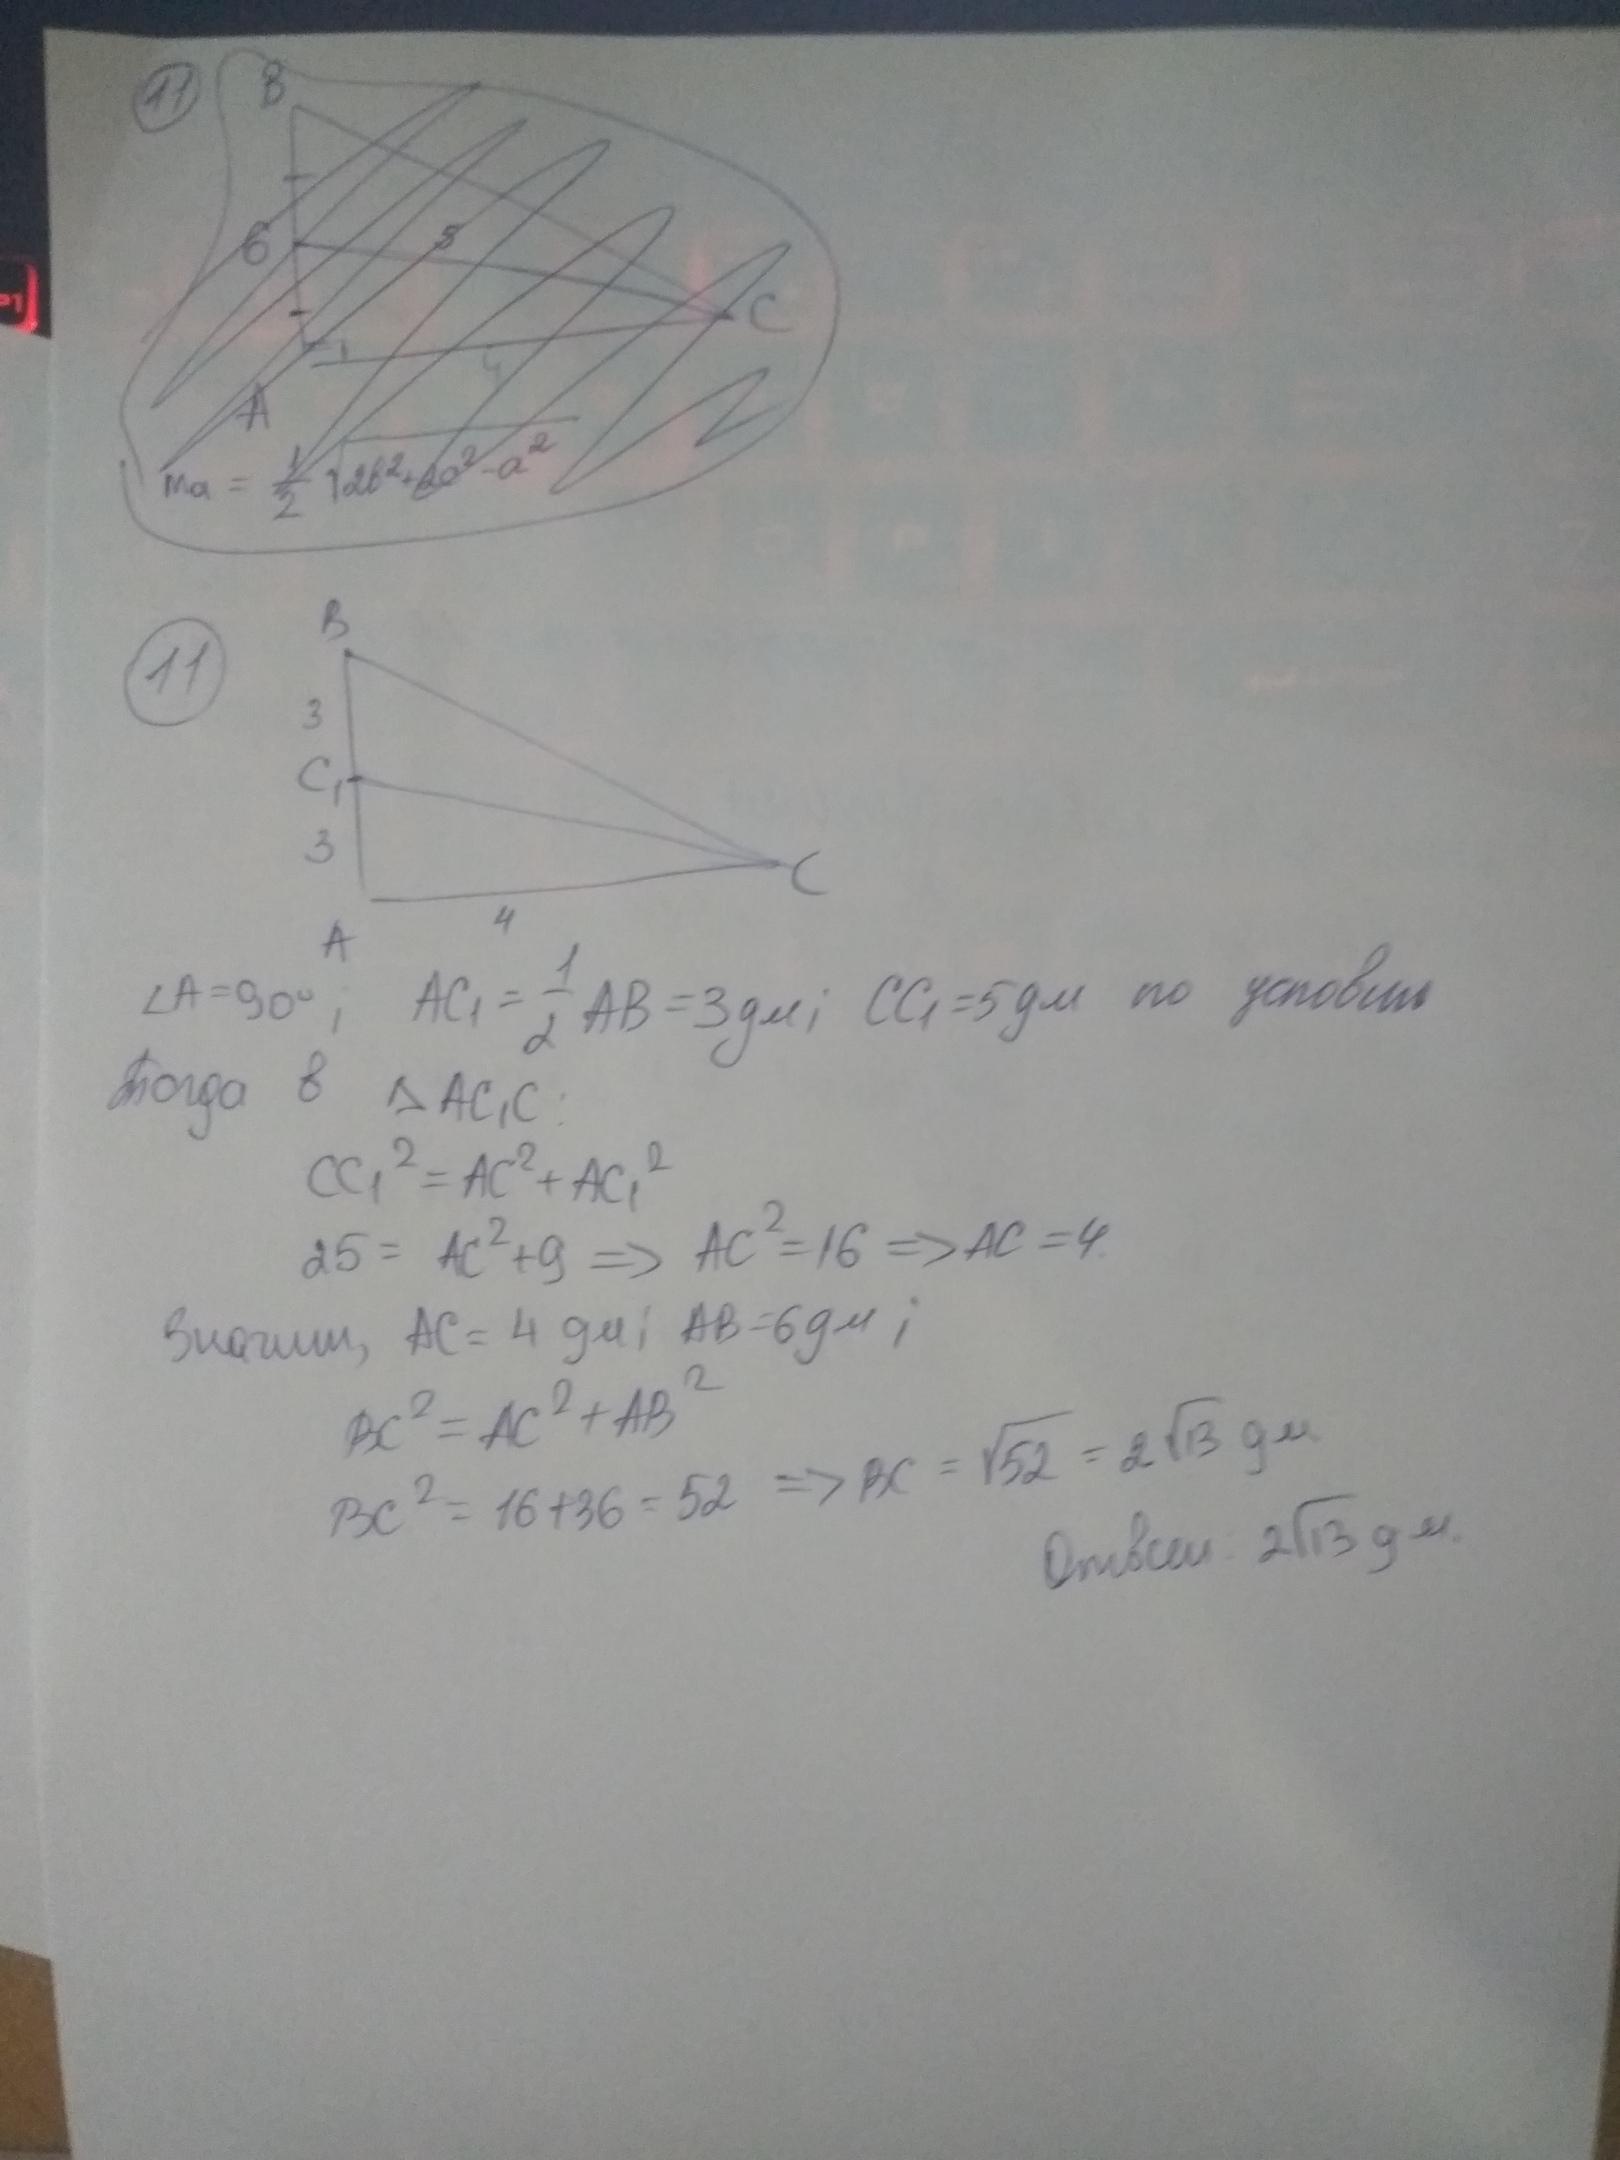 11
B
6
5
C
4
A
ma = 1/2 √2b²+2c²-a²
11
B
3
C₁
3
C
4
A
∠A=90°; AC₁ = 1/2 AB = 3дм; CC₁ = 5дм по условию
Тогда в △AC₁C:
CC₁² = AC² + AC₁²
25 = AC² + 9 => AC² = 16 => AC = 4.
Значит, AC = 4 дм; AB = 6дм;
BC² = AC² + AB²
BC² = 16+36 = 52 => BC = √52 = 2√13 дм
Ответ: 2√13 дм.